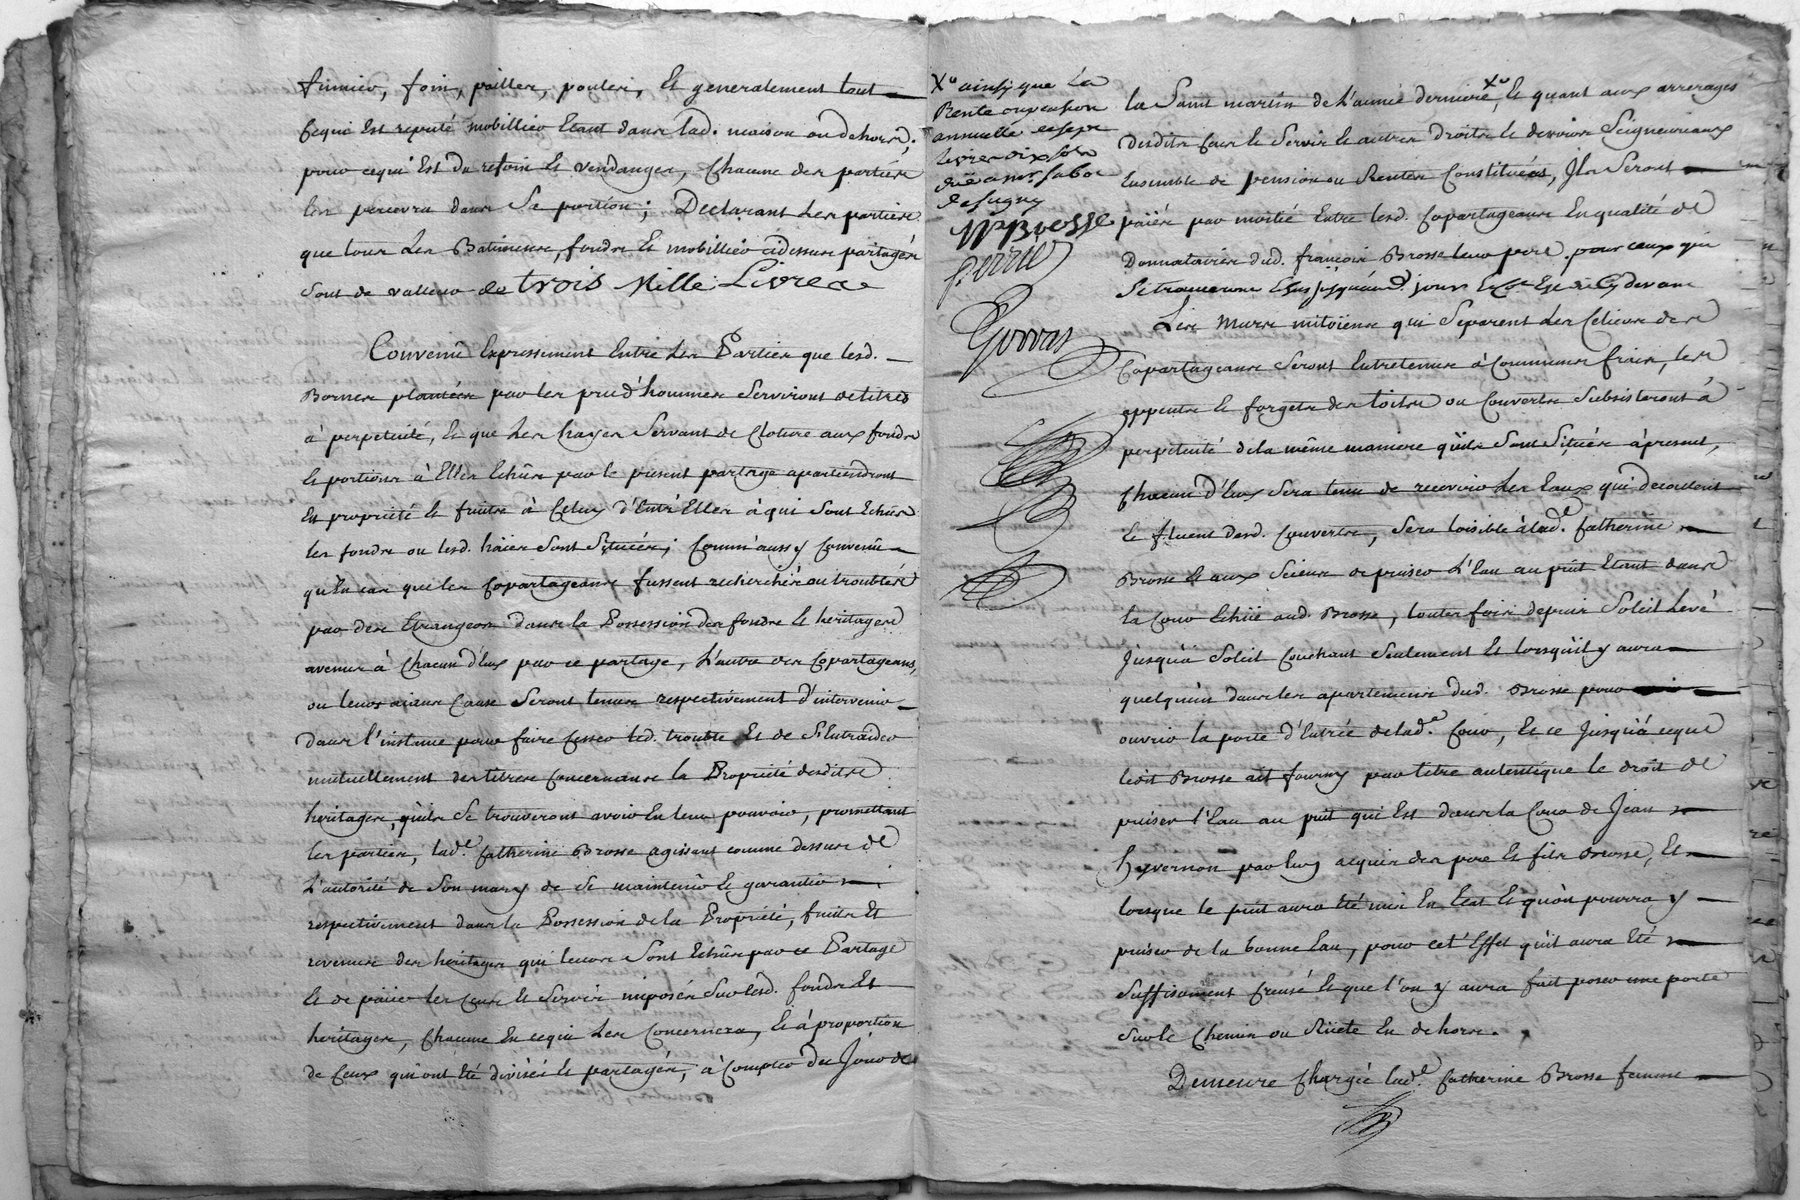 fumier, foin, pailles, poules, Et generalement tout
Cequi Est reputé mobillier Etant dans lad. maison ou dehors,
pour cequi Est du refoin Et vendanges, Chacune des parties
les percevra dans Sa portion; Declarant Les parties
que tous Les Batimens, fonds Et mobillier cidessus partagés
Sont de valleur de trois Mille Livres
Convenu Expressement Entre Les Parties que lesd.
Bornes plantées par les prud'hommes Serviront de titres
à perpetuité, Et que Les hayes Servant de Cloture aux fonds
Et portions à Elles Echûes par le present partage apartiendront
En propriété Et fruits à Celuy d'Entr'Elles à qui Sont Echus
les fonds ou lesd. häies Sont Situées; Comm'aussy Convenu
qu'En cas que les Copartageans fussent recherchés ou troublés
par des Etrangers dans la Possession des fonds Et heritages
avenus à Chacun d'Eux par ce partage, L'autre des Copartageans,
ou leurs aians Cause Seront tenus respectivement d'intervenir
dans l'instance pour faire Cesser led. trouble Et de S'Entraider
mutuellement des titres Concernans la Propriété desdits
heritages, qu'ils Se trouveront avoir En leur pouvoir, promettant
les parties, lad.e Catherine Brosse agissant comme dessus de
L'autorité de Son mary de Se maintenir Et garantir
respectivement dans la Possession de la Propriété, fruits Et
revenus des heritages qui leurs Sont Echûs par ce Partage
Et de päier les Cens Et Servis imposés Sur lesd. fonds Et
heritages, Chacune En cequi Les Concernera, Et à proportion
de Ceux qui ont Eté divisés Et partagés, à Compter du Jour de
Xu ainsy que La
Rente ou pension
annuelle de sept
livres dix sols
düe a mr. Sabot
de Sugny
Brosse
Perrie
Gonras
la Saint martin de L'année derniere Xu, Et quant aux arrerages
desdits Cens Et Servis Et autres droits Et devoirs Seigneuriaux
Ensemble de pension ou Rentes Constituées, Ils Seront
päiés par moitié Entre lesd. Copartageans En qualité de
Donnataires dud. françois Brosse leur pere. pour ceux qui
Se trouveront
Les Murs mitoïens qui Separent Les Celiers des
Copartageans Seront Entretenus à Communs frais, les
appentis Et forgets des toits ou Couverts Subsisteront à
perpetuité de la même maniere qu'ils Sont Situés à present,
Chacun d'Eux Sera tenu de recevoir Les Eaux qui decoulent
Et fluent desd. Couverts, Sera loisible à lad.e Catherine
Brosse Et aux Siens de puiser L'Eau au puit Etant dans
la Cour Echüe aud. Brosse, toutes fois depuis Soleil Levé
Jusqu'à Soleil Couchant Seulement Et lorsqu'il y aura
quelqu'un dans les apartemens dud. Brosse pour
ouvrir la porte d'Entrée de lad.e Cour, Et ce Jusqu'à ceque
ledit Brosse ait fourny par titre autentique le droit de
puiser l'Eau au puit qui Est dans la Cour de Jean
Hyvernon par luy acquis des pere Et fils Brosse, Et
lorsque le puit aura Eté mis En Etat Et qu'on pourra y
puiser de la bonne Eau, pour cet Effet qu'il aura Eté
Suffisament Creusé Et que l'on y aura fait poser une porte
Sur le Chemin ou Rüete En dehors.
Demeure Chargée lad.e Catherine Brosse femme